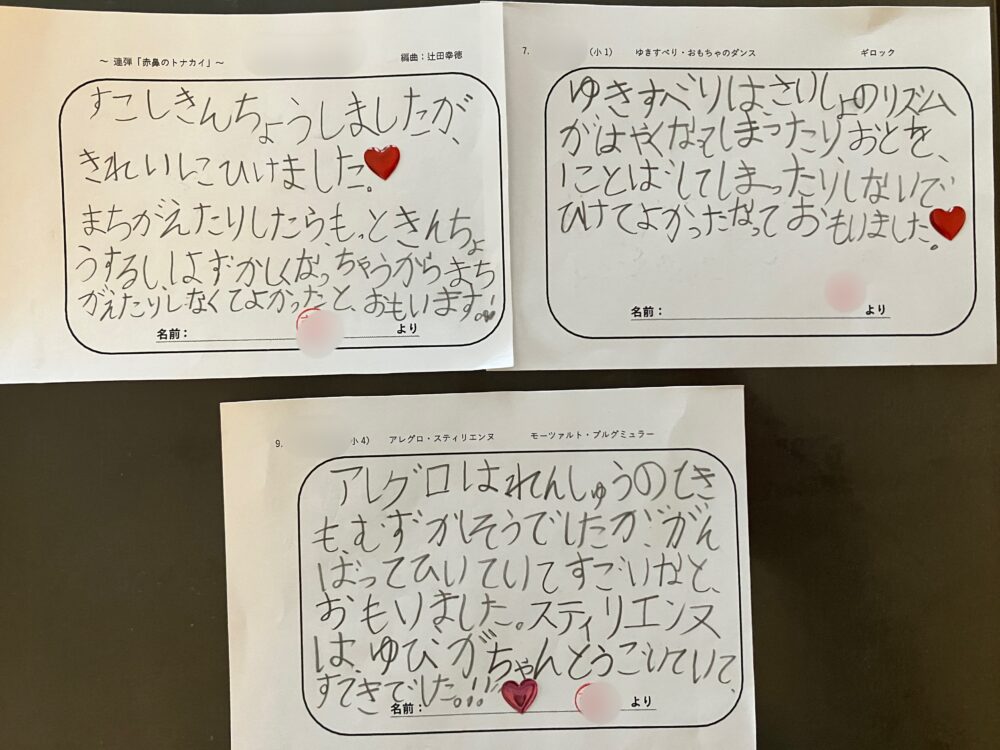 ～ 連弾「赤鼻のトナカイ」～
編曲：辻田幸徳
すこしきんちょうしましたが、
きれいにひけました。
まちがえたりしたら、もっときんちょ
うするし、はずかしくなっちゃうからまち
がえたりしなくてよかったと、おもいます。!
名前：
より
7.
(小1)
ゆきすべり・おもちゃのダンス
ギロック
ゆきすべりは、さいしょのリズム
が、はやくなってしまったり、おとを、
ことばしてしまったりしないで
ひけてよかったなっておもいました。
名前：
より
9.
小4)
アレグロ・スティリエンヌ
モーツァルト・ブルグミュラー
アレグロはれんしゅうのとき
も、むずかしそうでしたが、がん
ばってひいていてすごいなと、
おもいました。スティリエンヌ
は、ゆびがちゃんとうごいていて、
すてきでした。!!
名前：
より